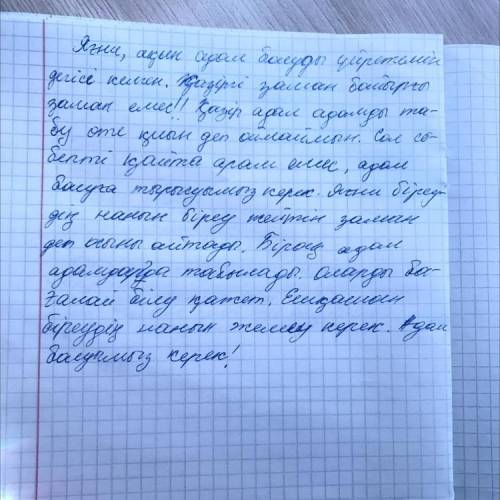 Яғни, ақын адал болуды үйретемін
дегісі келген. Қазіргі заман бойырғы
заман емес!! Қазір адал адамды та-
бу өте қиын деп ойлаймын. Сол се-
бепті қайта арам емес, адал
болуға тырысуымыз керек. Яғни біреу-
дің нанын біреу жейтін заман
деп осыны айтады. Бірақ адал
адамдарда табылады. Оларды ба-
ғалай білу қажет. Ешқашан
біреудің нанын жемеу керек. Адал
болуымыз керек!